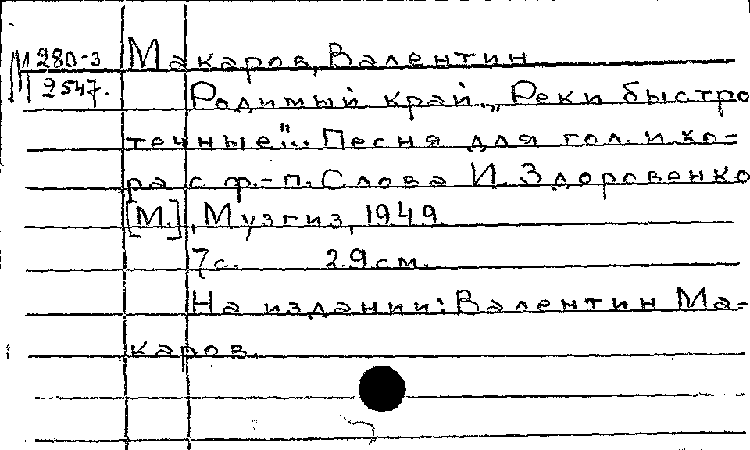 М 280-3
2547.
Макаров, Валентин
Родимый край. „Реки быстро
течные"... Песня для гол. и хо-
ра с ф.-п. Слова И. Здоровенко
[М.], Музгиз, 1949
7 с. 29 см.
На издании: Валентин Ма-
каров.